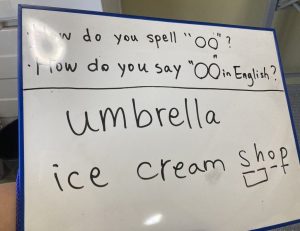 · How do you spell "○○"?
· How do you say "○○" in English?
umbrella
ice cream shop